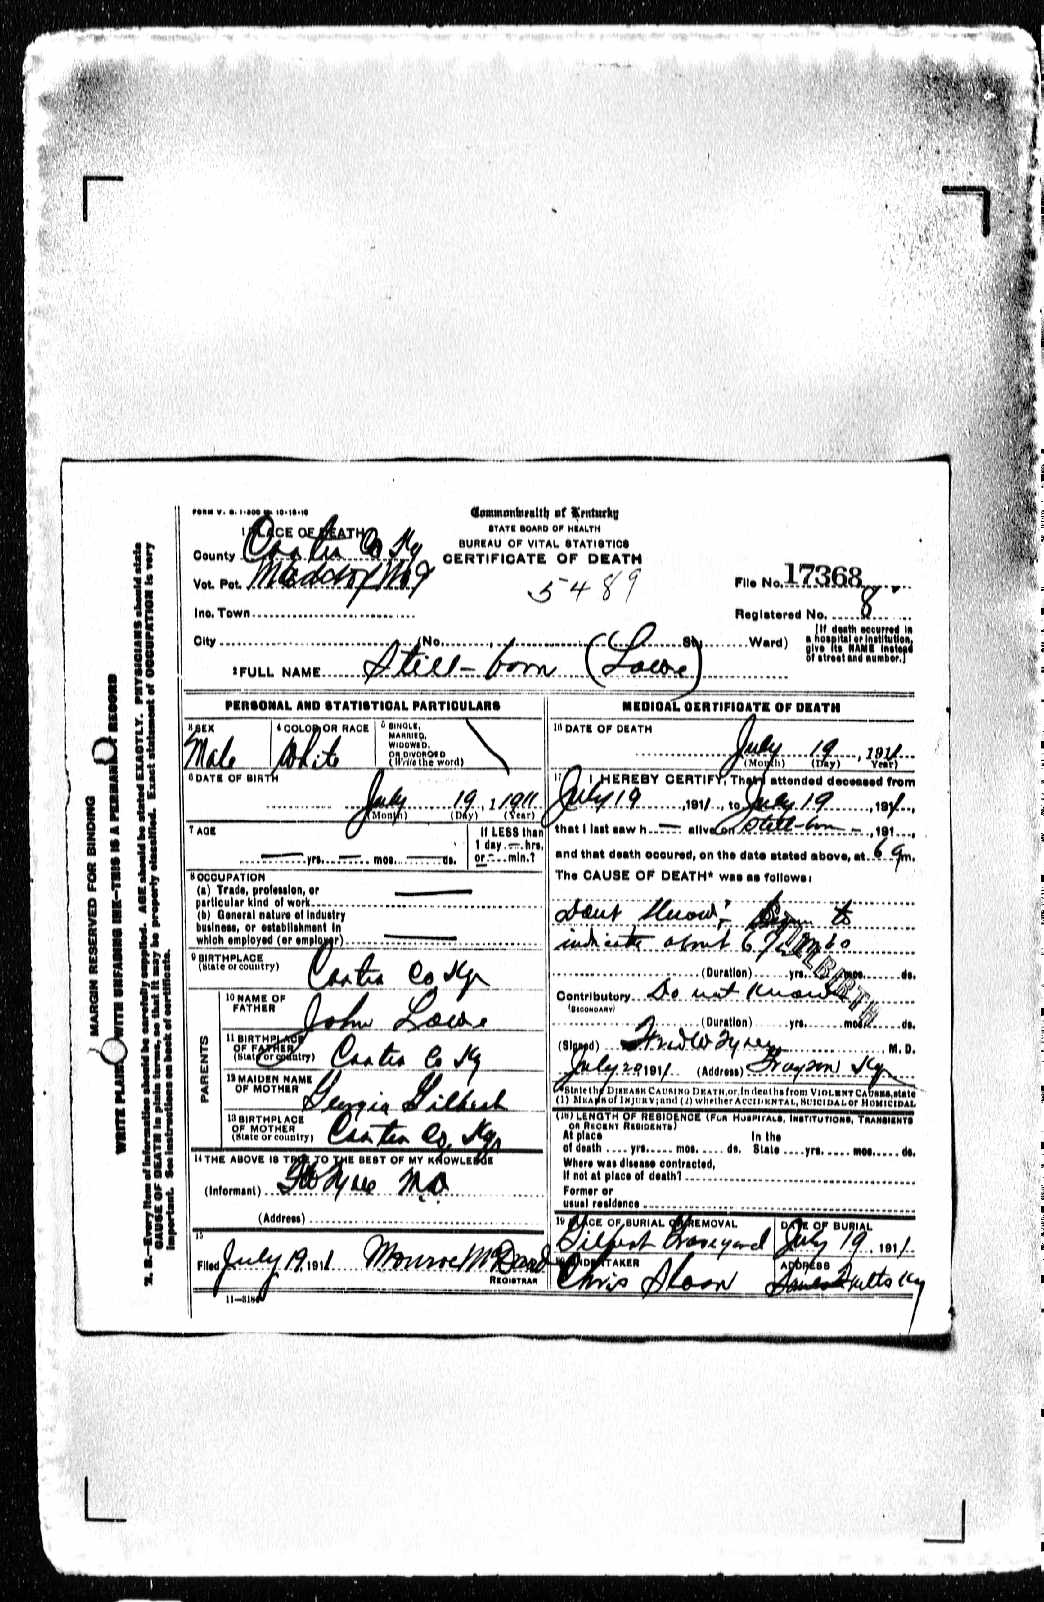 FORM V. S. 1-300 10-18-10
Commonwealth of Kentucky
STATE BOARD OF HEALTH
BUREAU OF VITAL STATISTICS
CERTIFICATE OF DEATH
1 PLACE OF DEATH
County Carter Co Ky
Vot. Pct. Maddox No 9
Inc. Town
City (No. St. Ward)
5489
File No. 17368
Registered No. 8
[If death occurred in a hospital or institution, give its NAME instead of street and number.]
2 FULL NAME Still-born (Lowe)
PERSONAL AND STATISTICAL PARTICULARS
3 SEX
Male
4 COLOR OR RACE
White
5 SINGLE, MARRIED, WIDOWED, OR DIVORCED (Write the word)
6 DATE OF BIRTH
July 19, 1911
(Month) (Day) (Year)
7 AGE
yrs. mos. ds.
If LESS than 1 day hrs. or min.?
8 OCCUPATION
(a) Trade, profession, or particular kind of work
(b) General nature of industry business, or establishment in which employed (or employer)
9 BIRTHPLACE
(State or country)
Carter Co Ky
PARENTS
10 NAME OF FATHER
John Lowe
11 BIRTHPLACE OF FATHER
(State or country)
Carter Co Ky
12 MAIDEN NAME OF MOTHER
Georgia Gilbert
13 BIRTHPLACE OF MOTHER
(State or country)
Carter Co, Ky
14 THE ABOVE IS TRUE TO THE BEST OF MY KNOWLEDGE
(Informant) M.D.
(Address)
15
Filed July 19, 1911
REGISTRAR
11-3184
MEDICAL CERTIFICATE OF DEATH
16 DATE OF DEATH
July 19, 1911
(Month) (Day) Year)
17 I HEREBY CERTIFY, That I attended deceased from
July 19, 1911, to July 19, 1911,
that I last saw h — alive on Still-born —, 191
and that death occured, on the date stated above, at 6 am.
The CAUSE OF DEATH* was as follows:
Dont Know; to
indicate about 6
STILLBIRTH
(Duration) yrs. mos. ds.
Contributory Do not Know
(SECONDARY)
(Duration) yrs. mos. ds.
(Signed) M. D.
July 20 1911 (Address) Grayson Ky
*State the DISEASE CAUSING DEATH, or, in deaths from VIOLENT CAUSES, state
(1) MEANS OF INJURY; and (2) whether ACCIDENTAL, SUICIDAL or HOMICIDAL
(18) LENGTH OF RESIDENCE (FOR HOSPITALS, INSTITUTIONS, TRANSIENTS OR RECENT RESIDENTS)
At place of death yrs. mos. ds. In the State yrs. mos. ds.
Where was disease contracted,
if not at place of death?
Former or
usual residence
19 PLACE OF BURIAL OR REMOVAL
Gilbert Graveyard
DATE OF BURIAL
July 19, 1911
20 UNDERTAKER
Chris Sloan
ADDRESS
Ky
MARGIN RESERVED FOR BINDING
WRITE PLAINLY WITH UNFADING INK—THIS IS A PERMANENT RECORD
N. B.—Every item of information should be carefully supplied. AGE should be stated EXACTLY. PHYSICIANS should state
CAUSE OF DEATH in plain terms, so that it may be properly classified. Exact statement of OCCUPATION is very
important. See instructions on back of certificate.